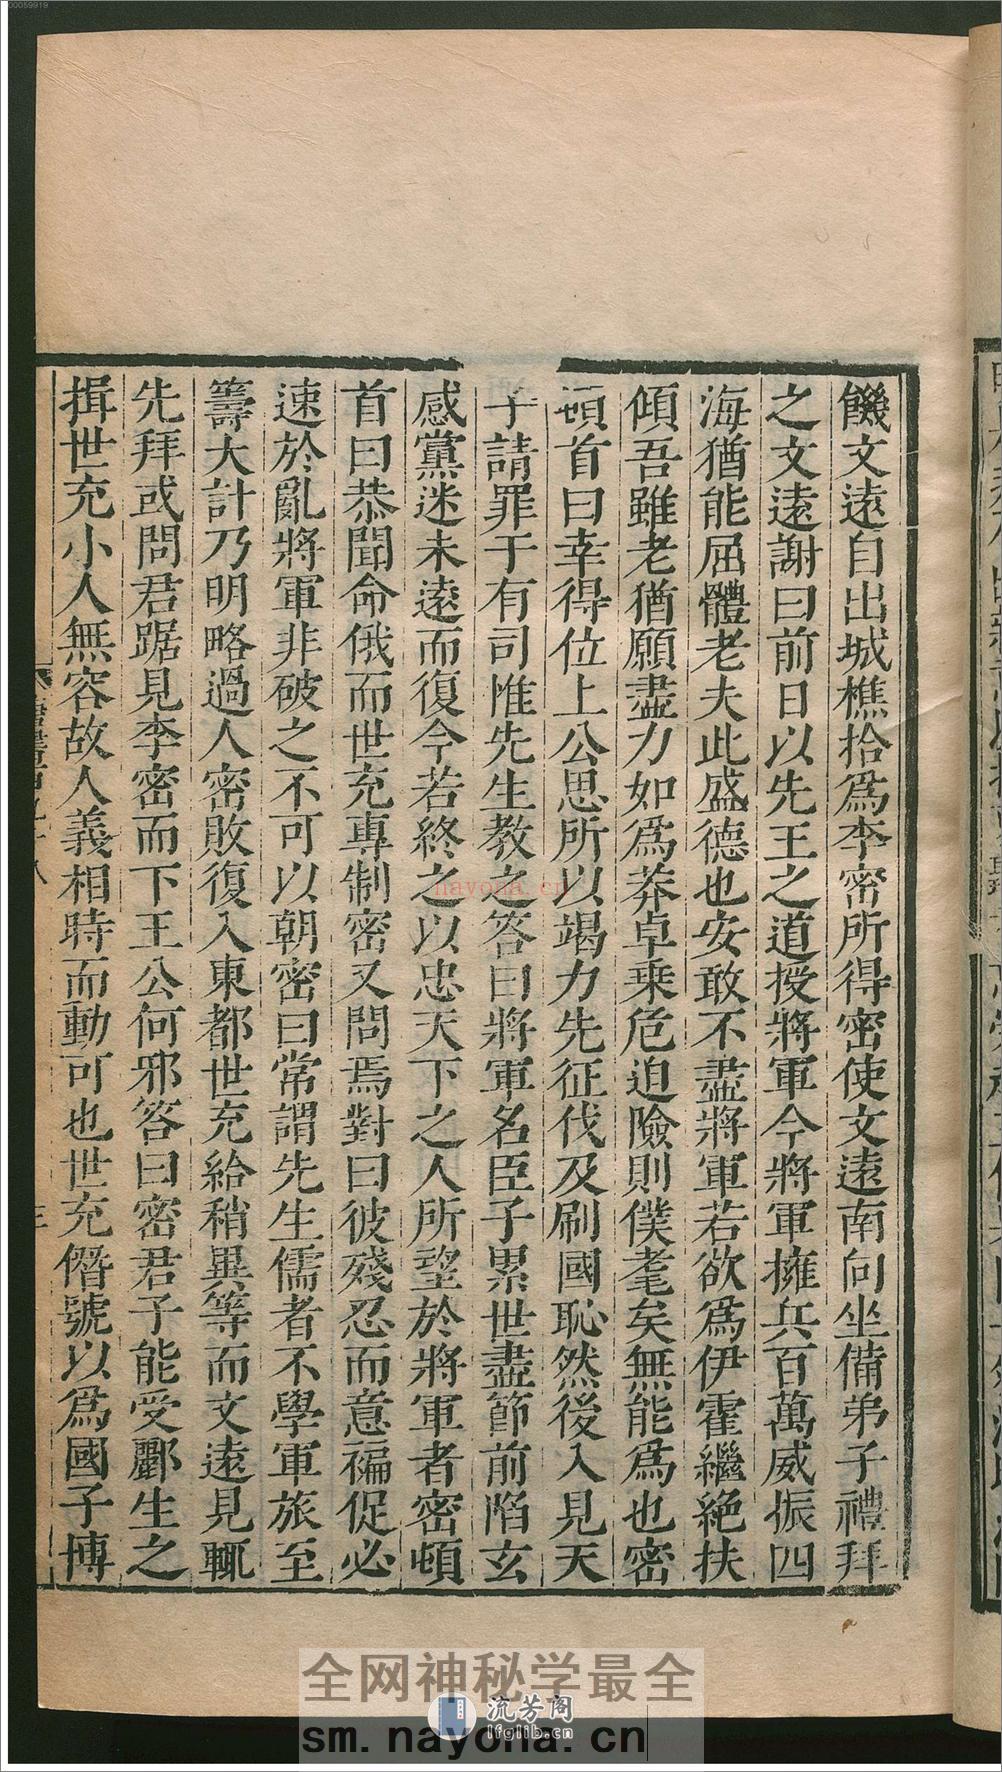 饑文遠自出城樵拾爲李密所得密使文遠南向坐備弟子禮拜
之文遠謝曰前日以先王之道授將軍今將軍擁兵百萬威振四
海猶能屈體老夫此盛德也安敢不盡將軍若欲爲伊霍繼絶扶
傾吾雖老猶願盡力如爲莽卓乗危迫險則僕耄矣無能爲也密
頓首曰幸得位上公思所以竭力先征伐及刷國恥然後入見天
子請罪于有司惟先生教之答曰將軍名臣子累世盡節前陷玄
感黨迷未遠而復今若終之以忠天下之人所望於將軍者密頓
首曰恭聞命俄而世充專制密又問焉對曰彼殘忍而意褊促必
速於亂將軍非破之不可以朝密曰常謂先生儒者不學軍旅至
籌大計乃明略過人密敗復入東都世充給稍異等而文遠見輒
先拜或問君踞見李密而下王公何邪答曰密君子能受酈生之
揖世充小人無容故人義相時而動可也世充僭號以爲國子博
nayona.cn
全网神秘学最全
流芳阁
lfglib.cn
sm.nayona.cn
00059919